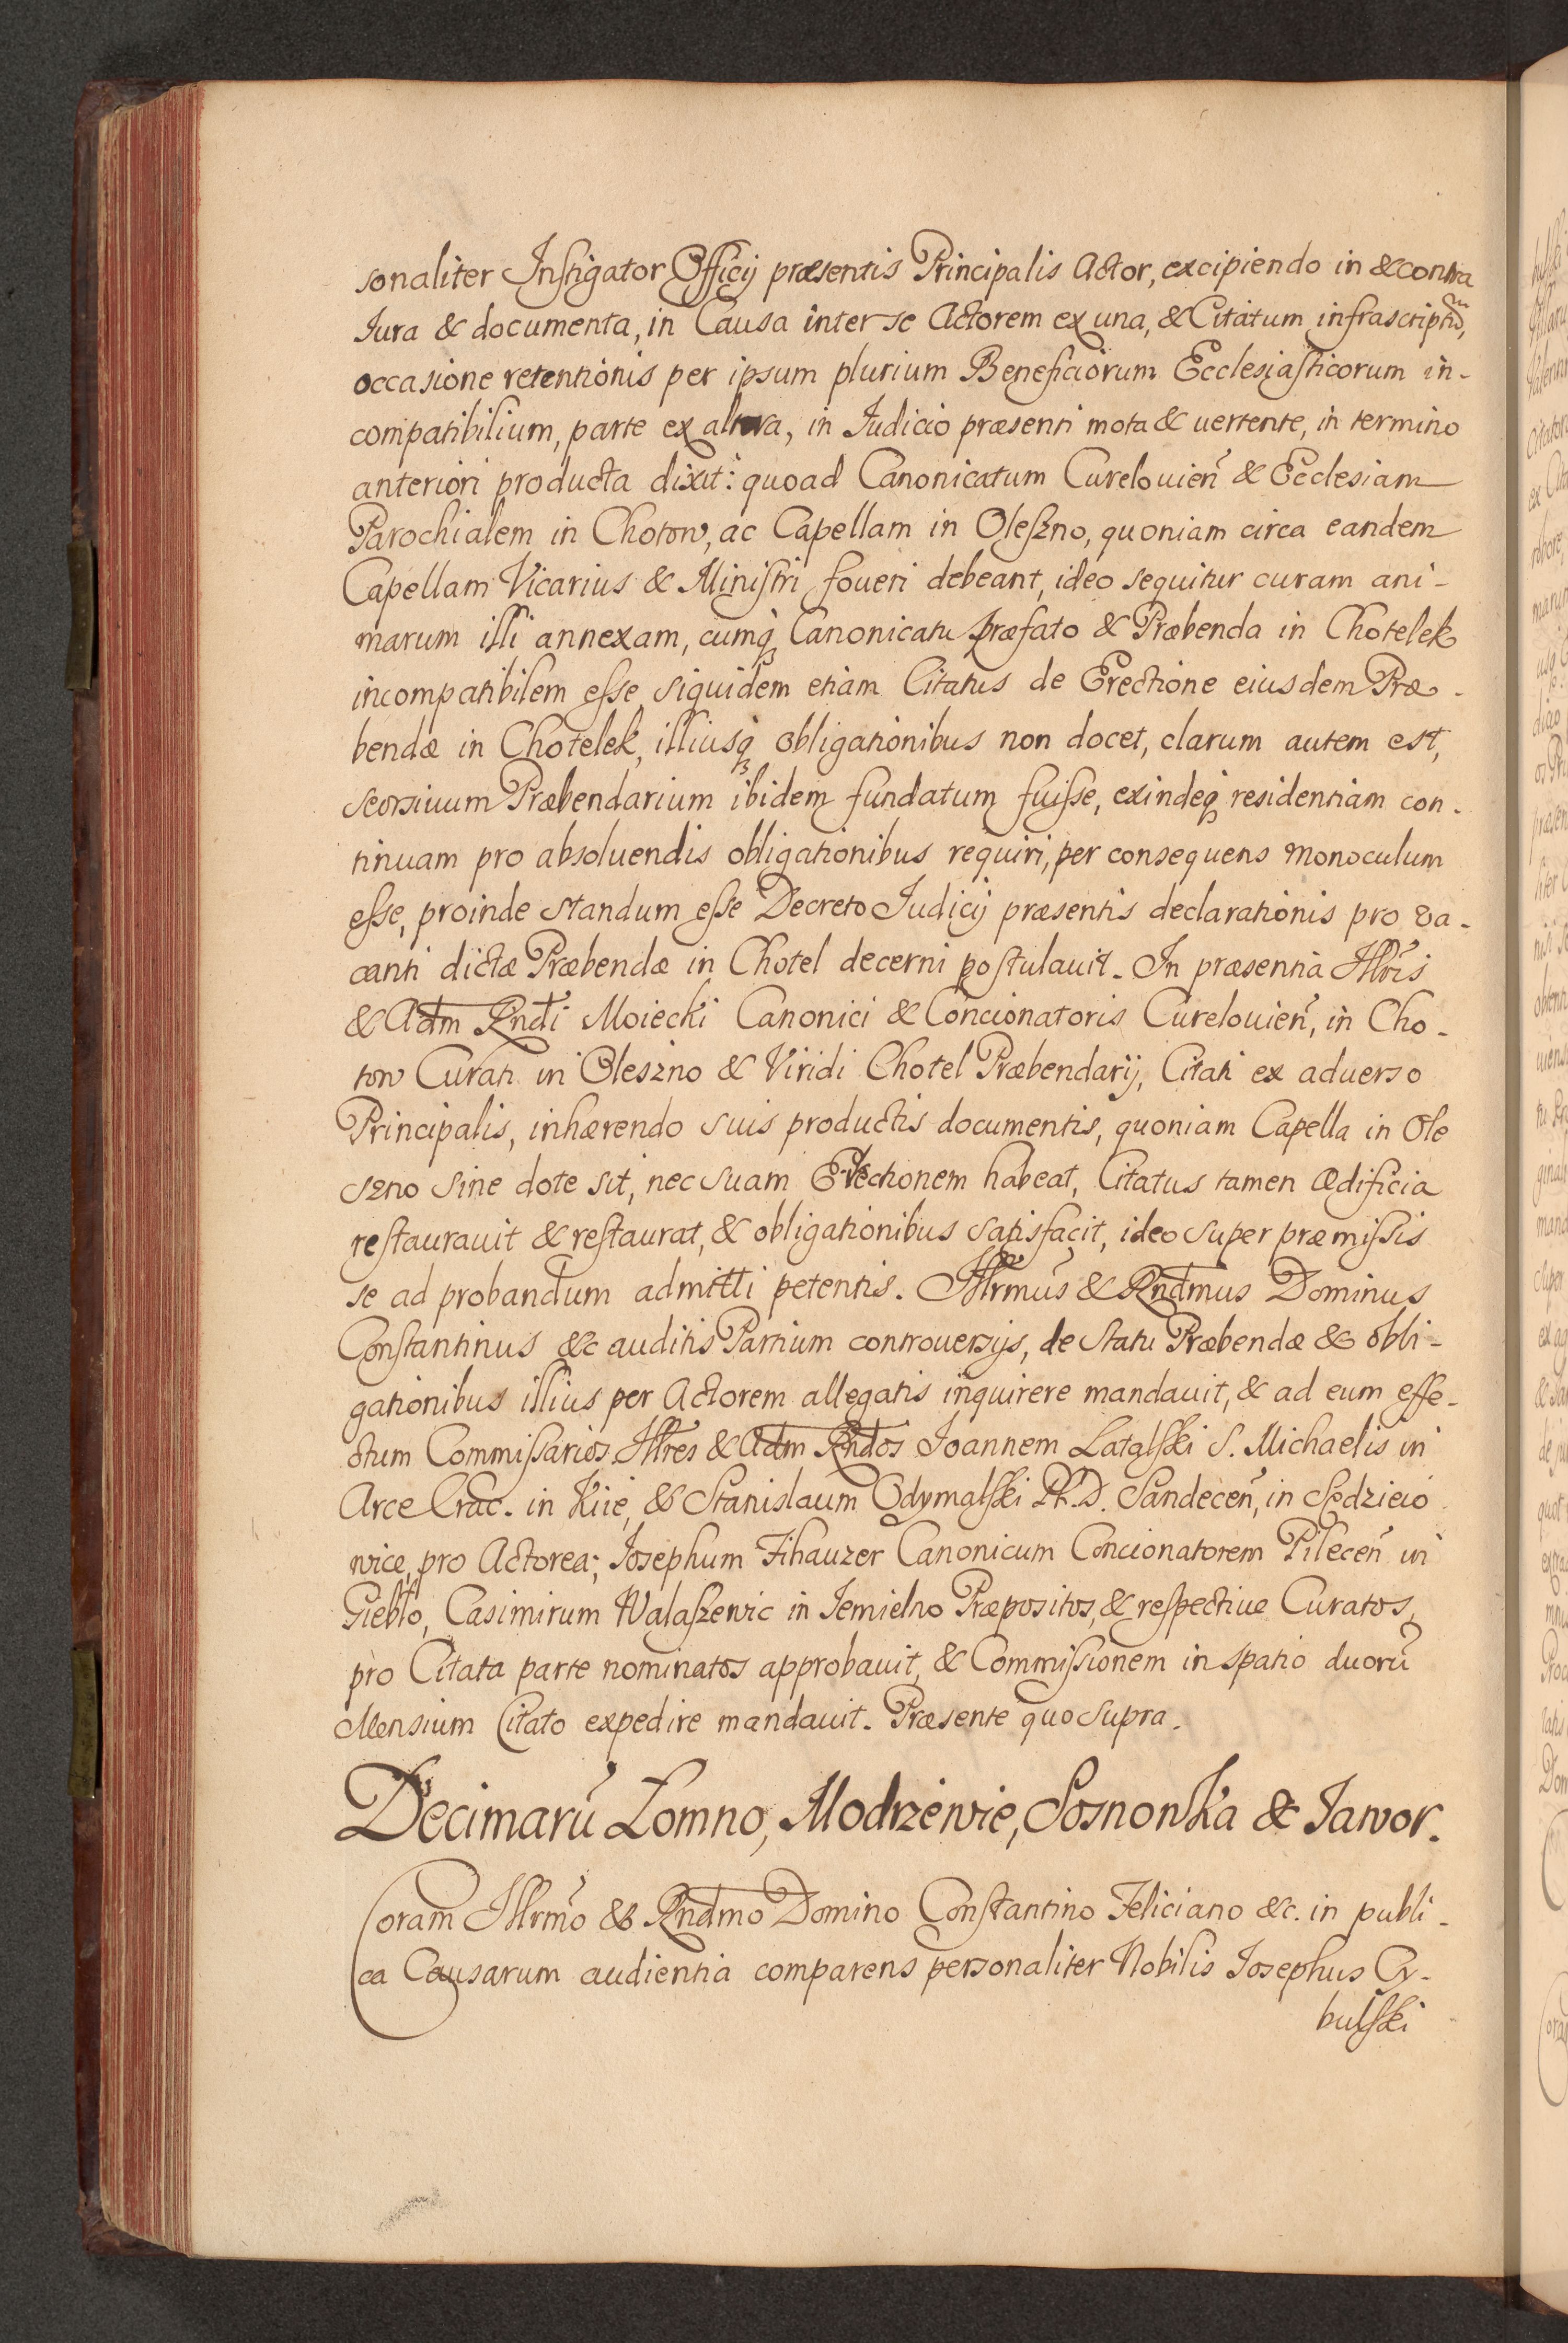 sonaliter Instigator Officij præsentis Principalis Actor, excipiendo in & contra
Jura & documenta, in Causa inter se Actorem ex una, & Citatum infrascriptũ,
occasione retentionis per ipsum plurium Beneficiorum Ecclesiasticorum in-
compatibilium, parte ex altera, in Judicio præsenti mota & uertente, in termino
anteriori producta dixit: quoad Canonicatum Curelouien̄ & Ecclesiam
Parochialem in Chotow, ac Capellam in Oleszno, quoniam circa eandem
Capellam Vicarius & Ministri foueri debeant, ideo sequitur curam ani-
marum illi annexam, cumq́ Canonicatu præfato & Præbenda in Chotelek
incompatibilem esse, siquidem etiam Citatus de Erectione eiusdem Præ-
bendæ in Chotelek, illiusq́ obligationibus non docet, clarum autem est,
seorsiuum Præbendarium ibidem fundatum fuisse, exindeq́ residentiam con-
tinuam pro absoluendis obligationibus requiri, per consequens monoculum
esse, proinde standum esse Decreto Judicij præsentis declarationis pro va-
canti dictæ Præbendæ in Chotel decerni postulauit. In præsentia Illr̃is
& Adm Rndi Moiecki Canonici & Concionatoris Curelouien̄, in Cho-
tow Curati in Oleszno & Viridi Chotel Præbendarij, Citati ex aduerso
Principalis, inhærendo suis productis documentis, quoniam Capella in Ole
szno sine dote sit, nec suam Erectionem habeat, Citatus tamen ædificia
restaurauit & restaurat, & obligationibus satisfacit, ideo super præmissis
se ad probandum admitti petentis. Illrmus & Rndmus Dominus
Constantinus &c auditis Partium controuersijs, de statu Præbendæ & obli-
gationibus illius per Actorem allegatis inquirere mandauit, & ad eum effe-
ctum Commissarios Illres & Adm Rndos Joannem Latalski S. Michaelis in
Arce Crac. in Kiie, & Stanislaum Odymalski Ph.D. Sandecen̄, in Sędzieio
wice, pro Actorea; Josephum Fihauzer Canonicum Concionatorem Pilecen̄ in
Giebło, Casimirum Walaszewic in Jemielno Præpositos, & respectiue Curatos,
pro Citata parte nominatos approbauit, & Commissionem in spatio duorũ
Mensium Citato expedire mandauit. Præsente quo supra.
Decimarũ Łomno, Modrzewie, Sosnowka & Jawor.
Coram Illrmo & Rndmo Domino Constantino Feliciano &c. in publi-
ca Causarum audientia comparens personaliter Nobilis Josephus Cy-
bulski